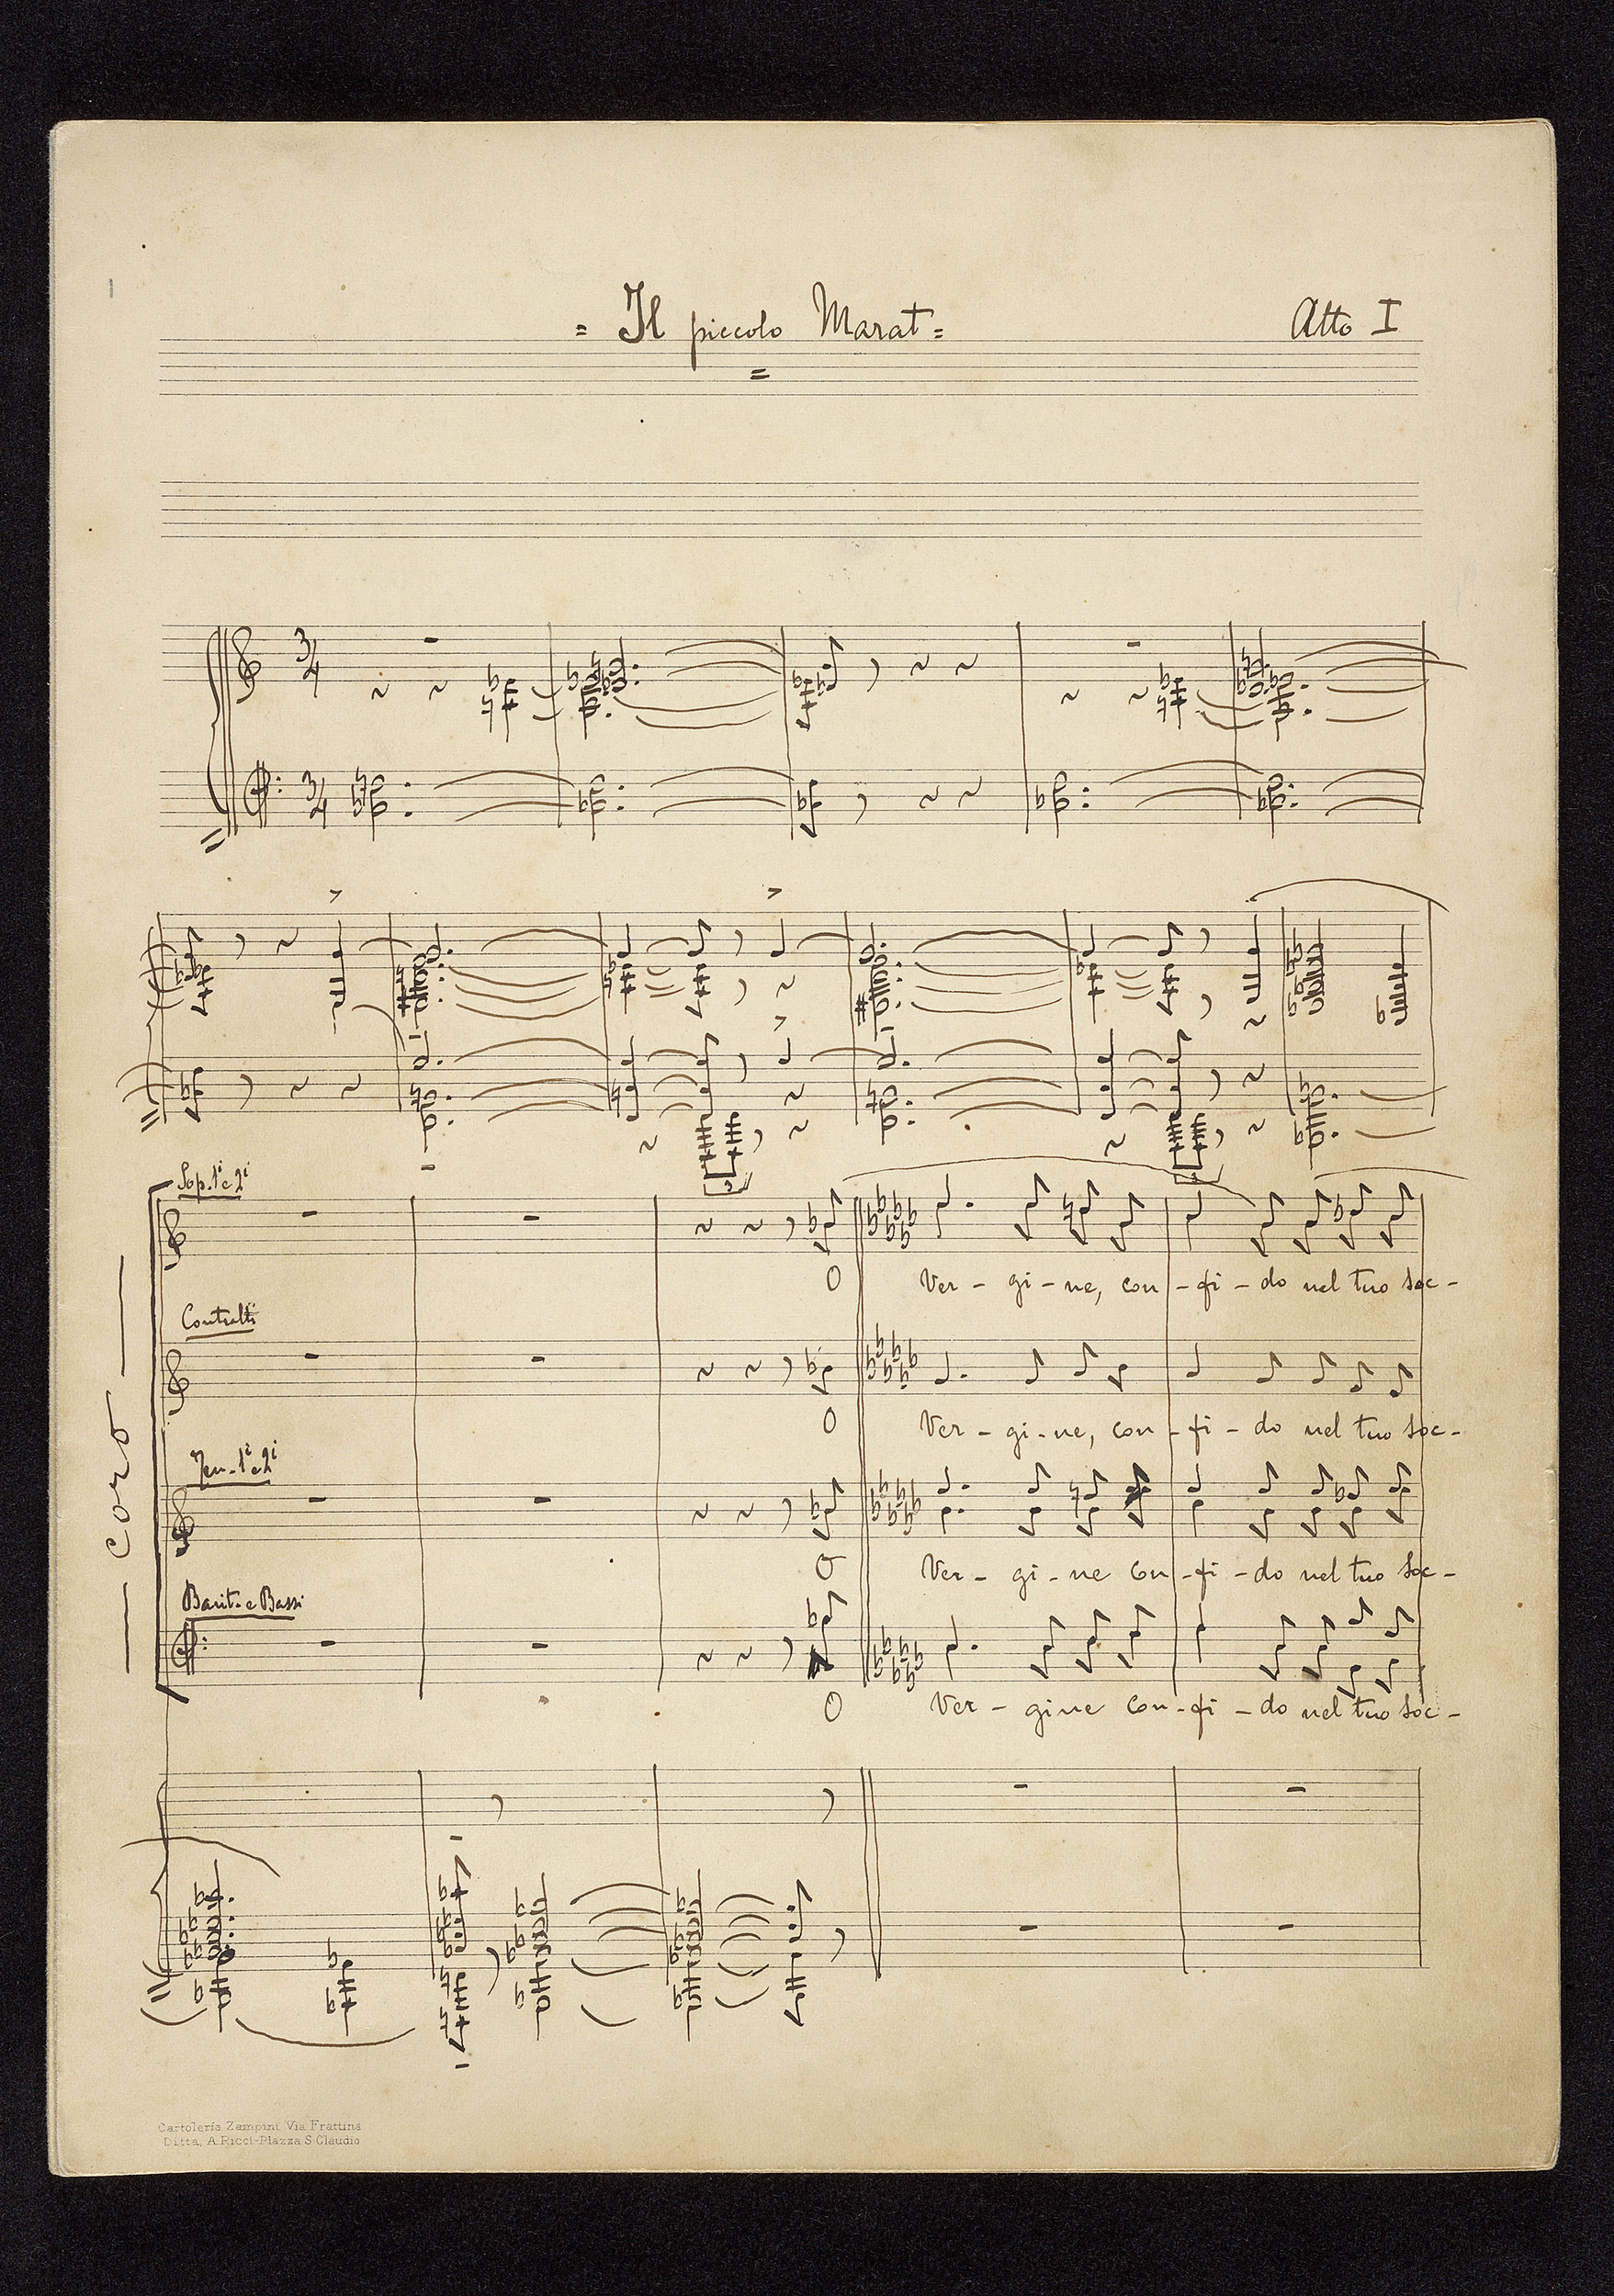 = Il piccolo Marat =
Atto I
3/4
3/4
3
3
coro
Sop. 1i e 2i
O Ver - gi - ne, con - fi - do nel tuo soc -
Contralti
O Ver - gi - ne, con - fi - do nel tuo soc -
Ten. 1i e 2i
O Ver - gi - ne con - fi - do nel tuo soc -
Barit. e Bassi
O Ver - gine con - fi - do nel tuo soc -
Cartoleria Zampini Via Frattina
Ditta, A. Ricci-Piazza S. Claudio